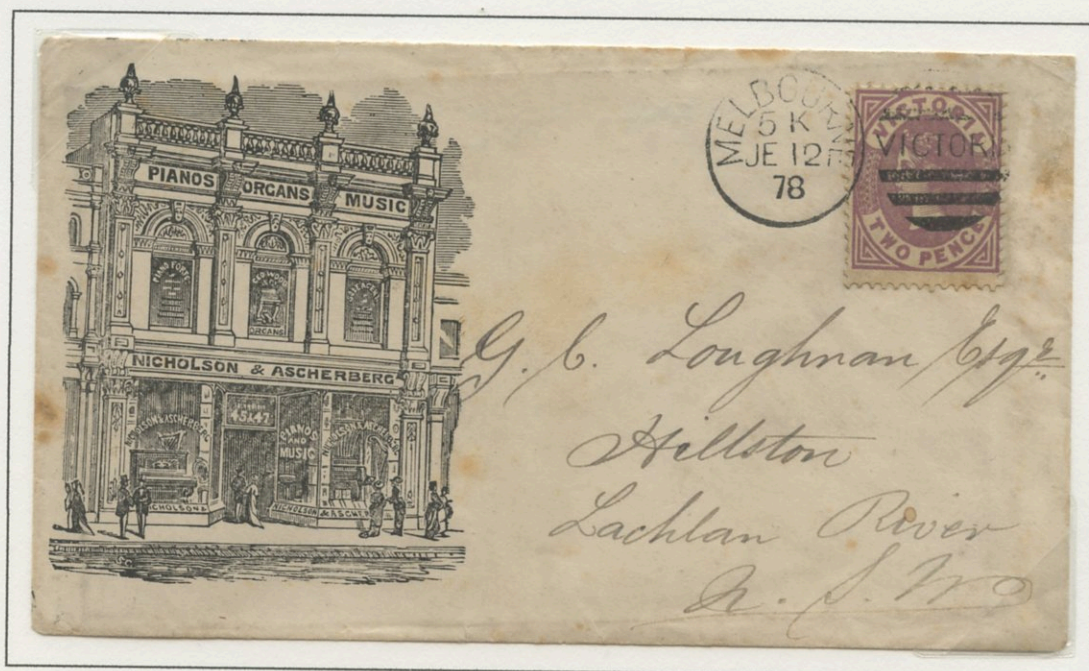 PIANOS ORGANS MUSIC
PIANO FORTE
ORGANS
NICHOLSON & ASCHERBERG
45 & 47
PIANOS
AND
MUSIC
NICHOLSON &
NICHOLSON & ASCHER
MELBOURNE
5 K
JE 12
78
VICTORIA
VICTORIA
TWO PENCE
G. C. Loughnan Esqr
Hillston
Lachlan River
N. S. W